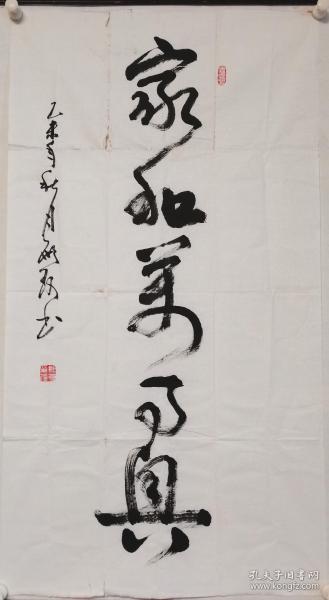 家和萬事興
乙未年秋月
书
孔夫子旧书网
www.kongfz.com